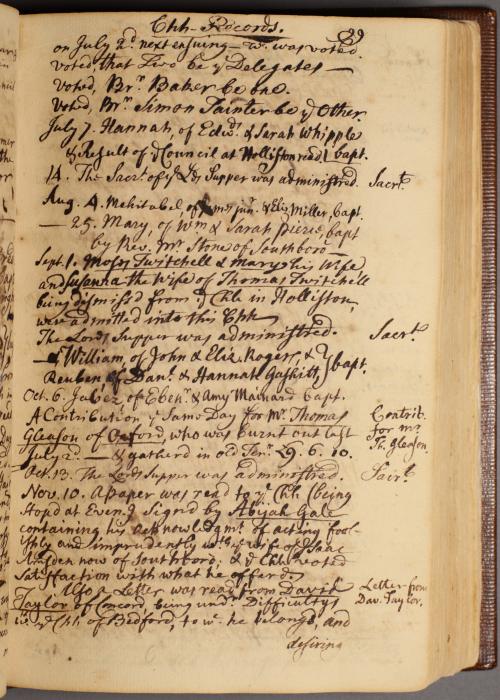 Chh-Records. 29
on July 2d. next ensuing — wc. was voted.
voted that Two be ye Delegates —
voted, Br. Baker be one.
Voted, Br. Simon Tainter be ye Other.
July 7. Hannah, of Edwd. & Sarah Whipple
& Result of ye Council at Holliston read bapt.
14. The Sacrt. of ye Lds Supper was administred. Sacrt.
Aug. 4. Mehitabel, of Jams jun. & Eliz Miller, bapt.
— 25. Mary, of Wm & Sarah Pierce, bapt
by Rev. Mr. Stone of Southboro —
Sept. 1. Moses Twitchell & Mary his Wife
and Susanna the Wife of Thomas Twitchell
being dismiss'd from ye Chh in Holliston,
were admitted into this Chh
The Lords Supper was administred. Sacrt.
— 8 William, of John & Eliz. Rogers, & }
Reuben of Danl. & Hannah Gaskitt, } bapt.
Oct. 6. Jabez of Ebenr. & Amy Mainard bapt.
A Contribution ye Same Day for Mr. Thomas Contrib.
Gleason of Oxford, who was burnt out last for Mr
July 2d. — & gatherd in old Tenr. 29. 6. 10. Th. Gleason.
Oct. 13. The Lords Supper was administred. Sacrt.
Nov. 10. A paper was read to ye Chh (being
Stopd at Evening) Signd by Abijah Gale
containing his acknowledgmt. of acting fool-
ishly and imprudently wth ye wife of Isaac
now of Southboro; & ye Chh voted
Satisfaction with what he offerd.
Also a Letter was read from David Letter from
Taylor of Concord, being undr. Difficultys Dav. Taylor.
wth ye Chh of Bedford, to wc. he belongs, and
desiring